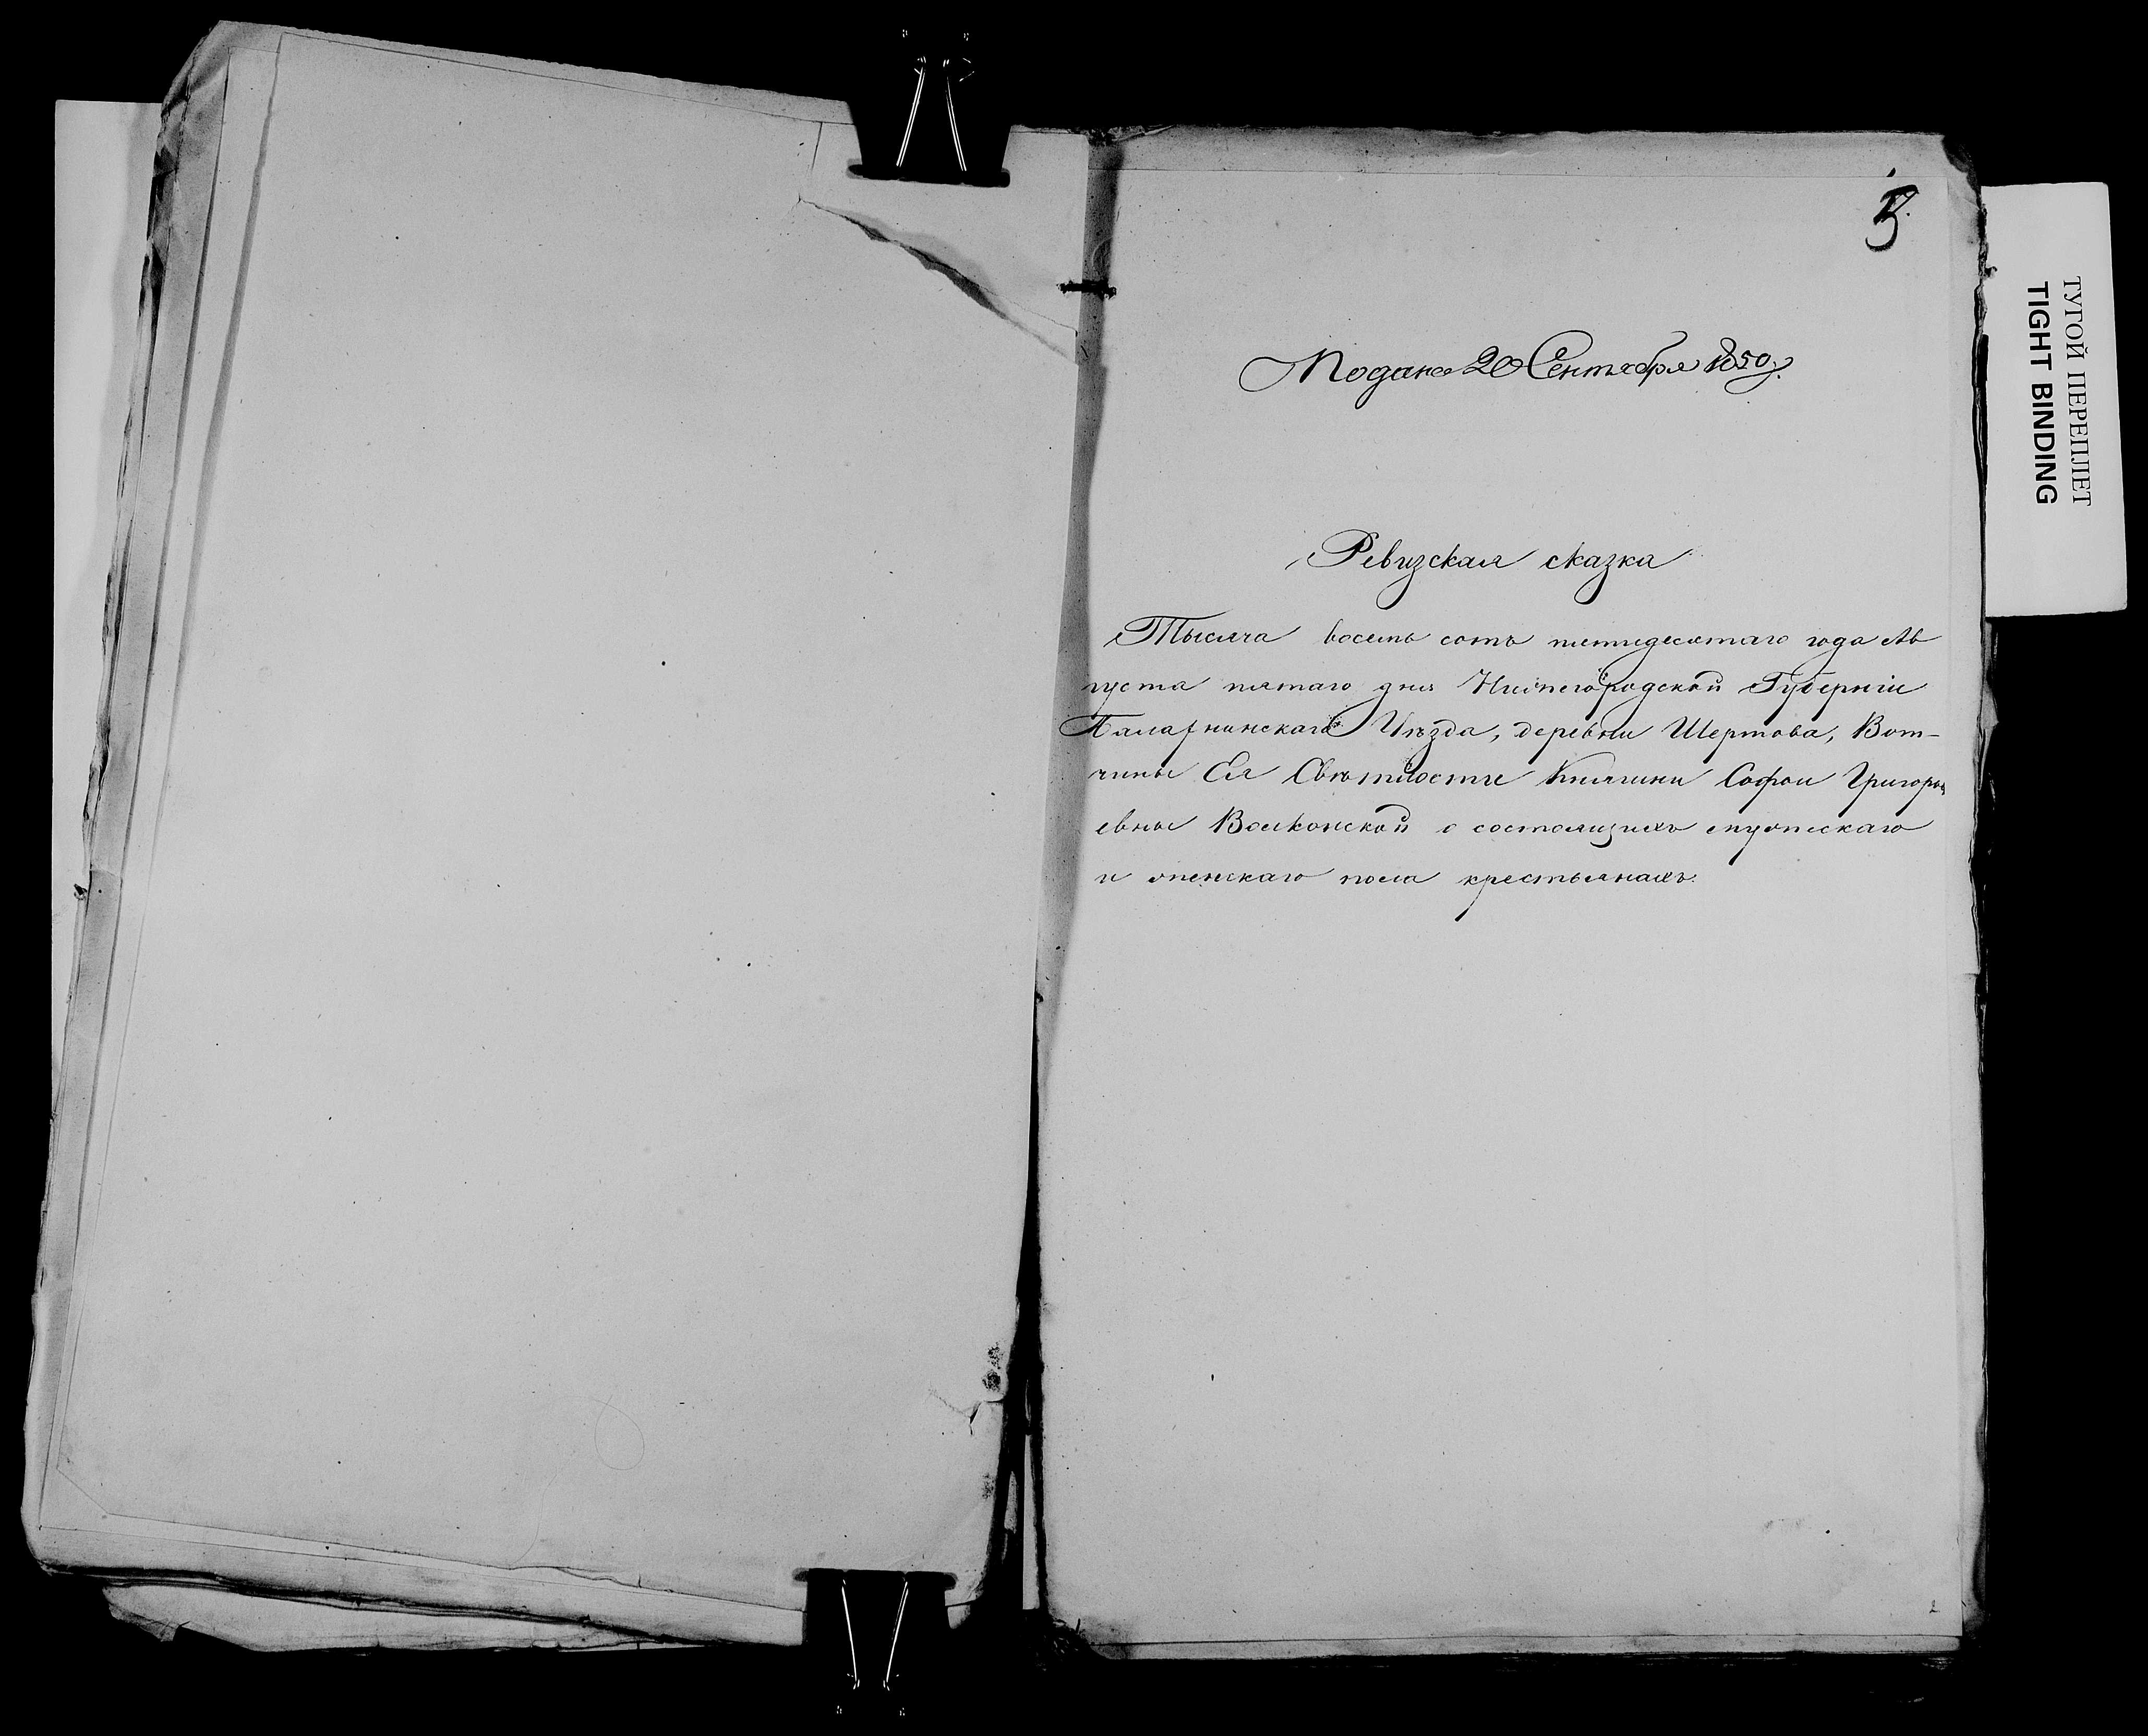 5.
Подана 20 Сентября 1850 г.
Ревизская сказка
Тысяча восемь сотъ пятидесятаго года Ав
густа пятаго дня Нижегородской Губерніи
Балахнинскаго Уѣзда, деревни Шертова, Вот-
чины Ея Свѣтлости Княгини Софьи Григорь
евны Волконской о состоящихъ мужескаго
и женскаго пола крестьянахъ.
2
ТУГОЙ ПЕРЕПЛЕТ
TIGHT BINDING